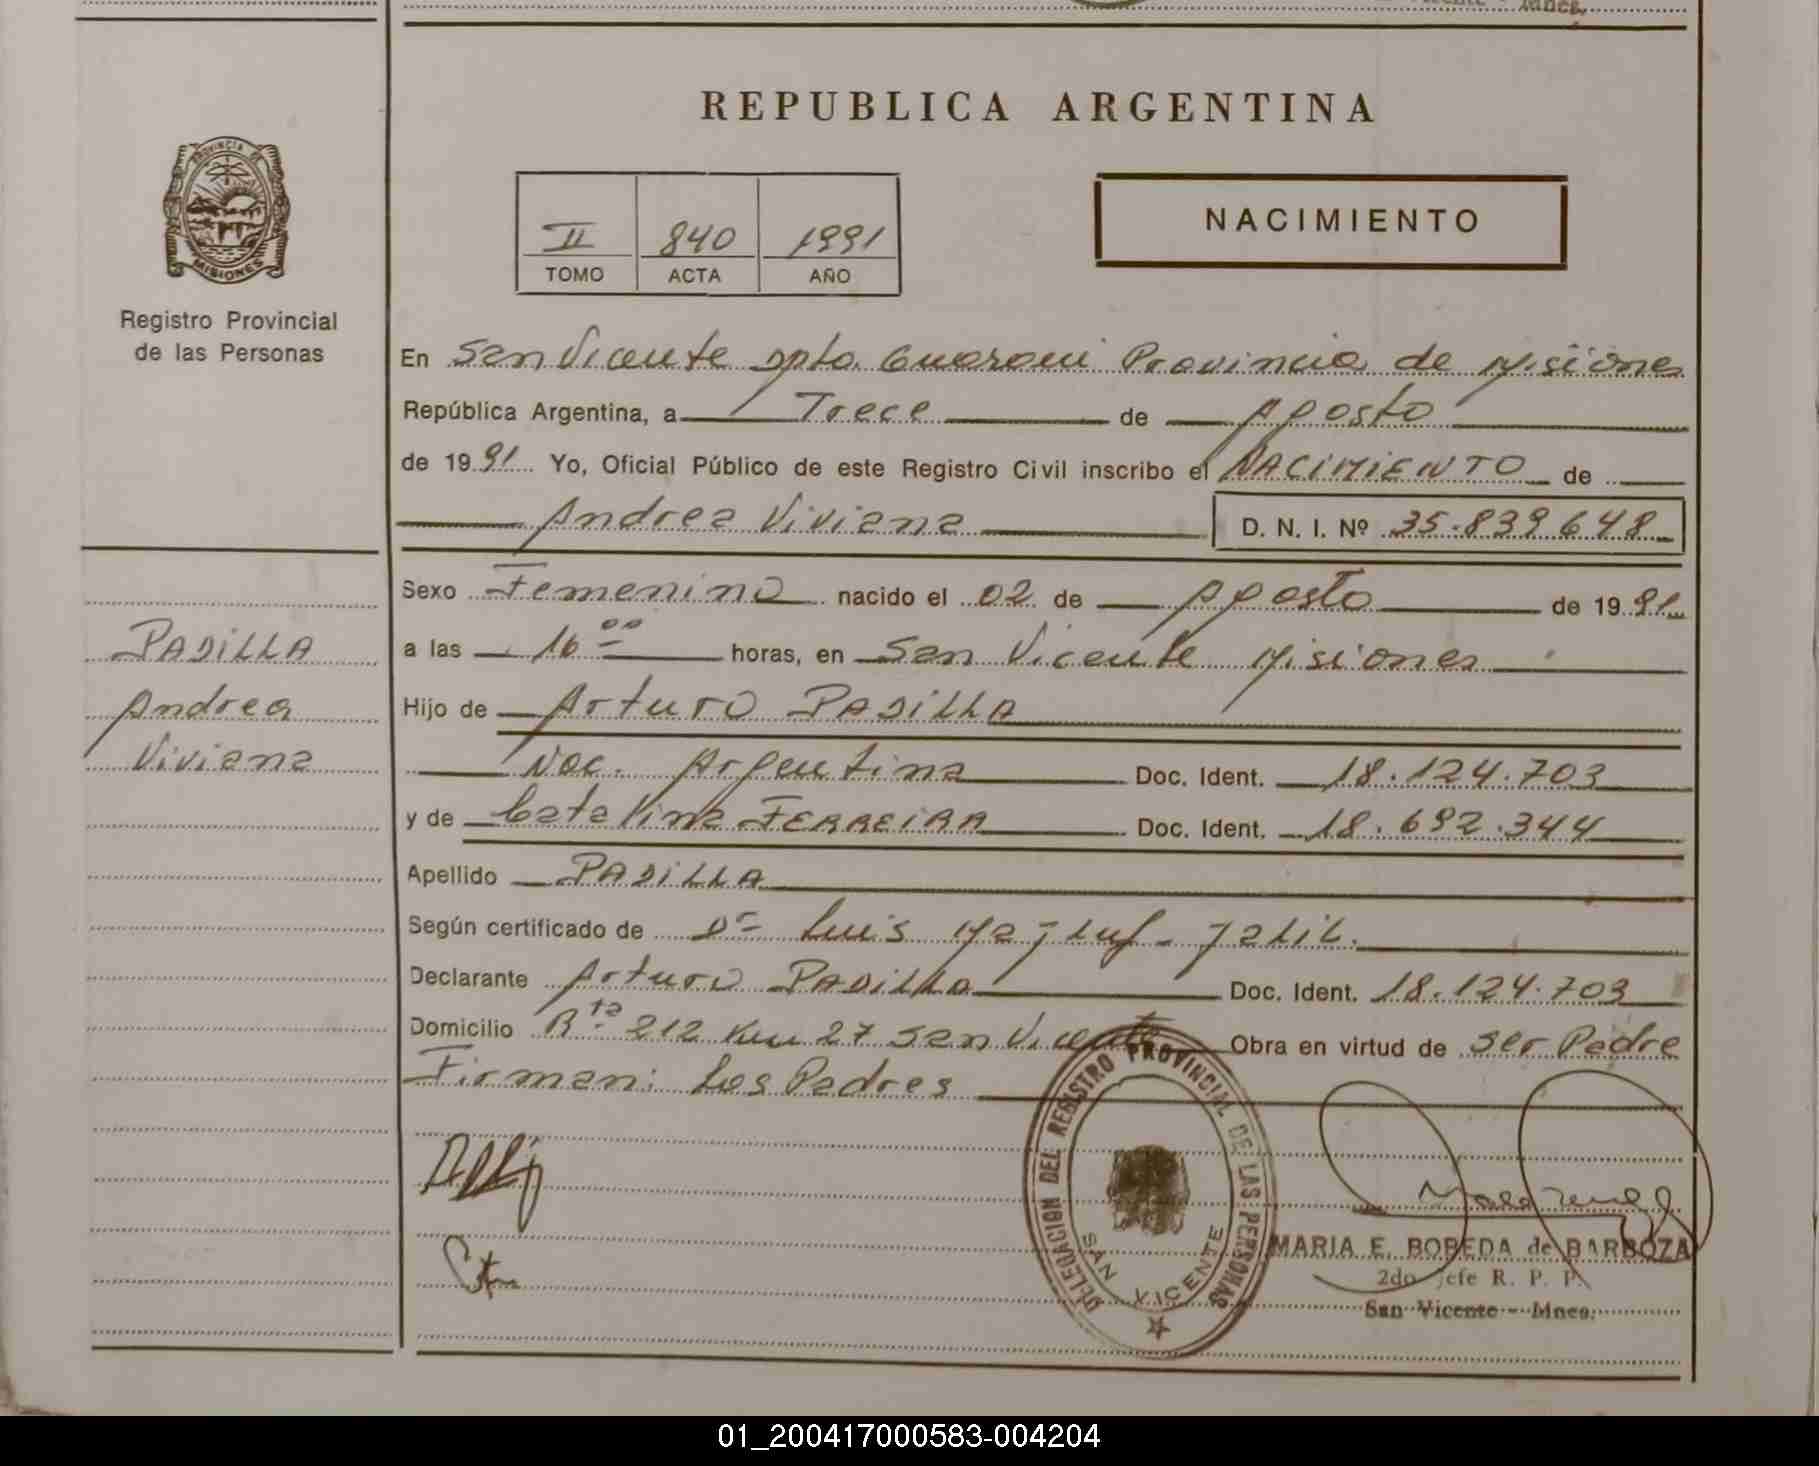 Mnes.
REPUBLICA ARGENTINA
PROVINCIA DE
MISIONES
Registro Provincial
de las Personas
II 840 1991
TOMO ACTA AÑO
NACIMIENTO
En San Vicente Dpto. Guarani Provincia de Misiones
República Argentina, a Trece de Agosto
de 1991 Yo, Oficial Público de este Registro Civil inscribo el NACIMIENTO de
Andrea Viviana D. N. I. Nº 35.839.648
Sexo Femenino nacido el 02 de Agosto de 1991
a las 16 00 horas, en San Vicente Misiones
Hijo de Arturo PADILLA
Nac. Argentina Doc. Ident. 18.124.703
y de Catalina FERREIRA Doc. Ident. 18.692.344
Apellido PADILLA
Según certificado de Dr Luis Jalil.
Declarante Arturo PADILLA Doc. Ident. 18.124.703
Domicilio R ta 212 Km 27 San Vicente Obra en virtud de ser Padre
Firman: Los Padres
PADILLA
Andrea
Viviana
DELEGACION DEL REGISTRO PROVINCIAL DE LAS PERSONAS
SAN VICENTE
MARIA E. BOBEDA de BARBOZA
2do Jefe R. P. P.
San Vicente - Mnes.
01_200417000583-004204